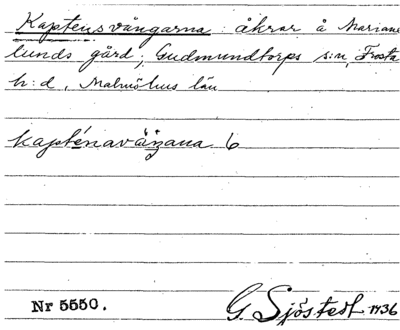 Kaptensvångarna: åkrar å Mariane
lunds gård, Gudmundtorps s:n, Frosta
h:d, Malmöhus län
kapténavåŋana 6
Nr 5550.
G. Sjöstedt 1936